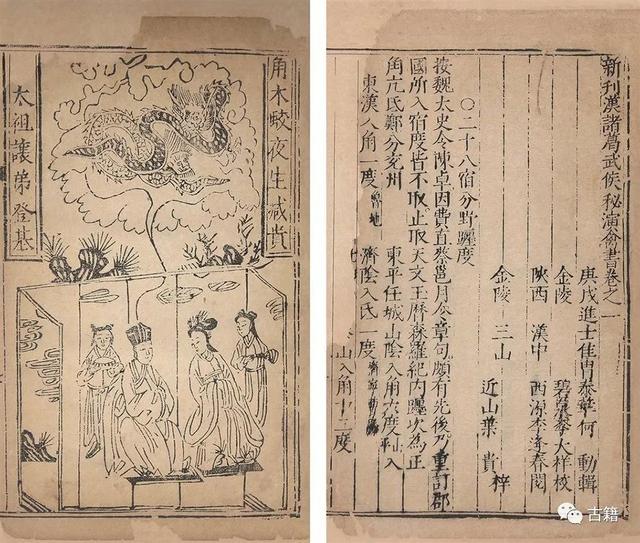 新刊漢諸葛武侯秘演禽書卷之一
庚戌進士佳冑泰華何 動輯
金陵 碧 大祥校
陝西 漢中 西源李逢春閱
金陵 三山 近山葉 貴 梓
○二十八宿分野躔度
按魏太史令陳卓因費直蔡邕月令章句頗有先後乃重訂郡
國所入宿度皆不取止取天文玉曆森羅紀內躔次為正
角亢氐鄭分兗州 東平任城山陰入角六度 入
東漢入角一度 濟陰入氐一度 山入角十二度
角木蛟夜生減貴
太祖讓弟登基
古籍